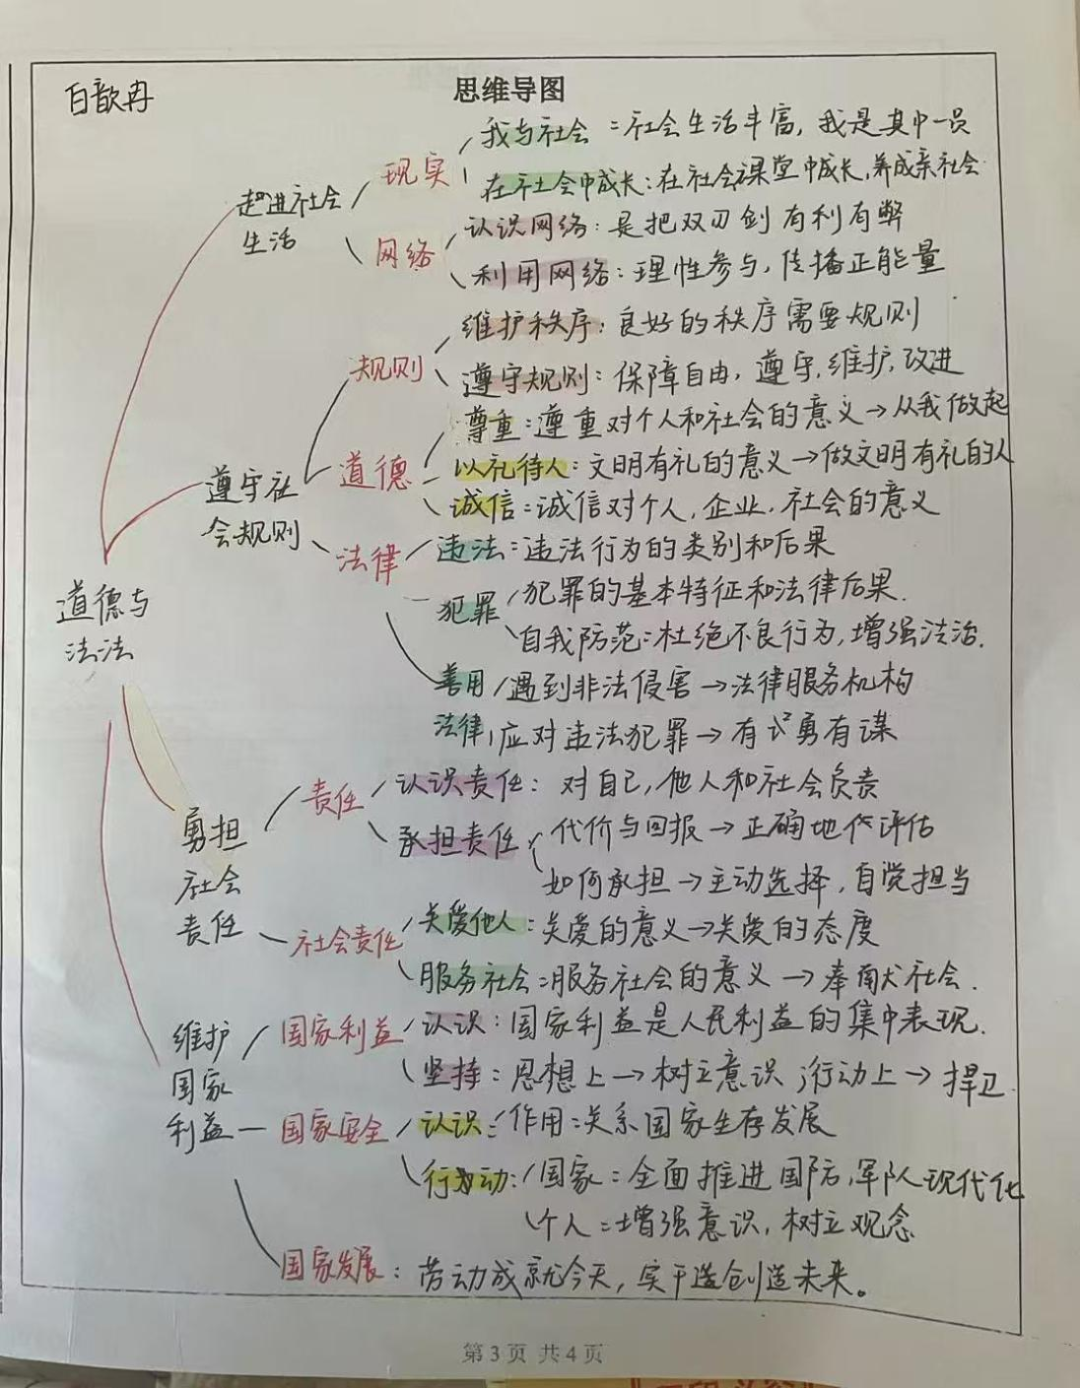 白歆冉
思维导图
道德与
法法
走进社会
生活
现实
我与社会：社会生活丰富，我是其中一员
在社会中成长：在社会课堂中成长，养成亲社会
网络
认识网络：是把双刃剑有利有弊
利用网络：理性参与，传播正能量
遵守社
会规则
规则
维护秩序：良好的秩序需要规则
遵守规则：保障自由，遵守，维护，改进
道德
尊重：尊重对个人和社会的意义→从我做起
以礼待人：文明有礼的意义→做文明有礼的人
诚信：诚信对个人，企业，社会的意义
法律
违法：违法行为的类别和后果
犯罪
犯罪的基本特征和法律后果.
自我防范：杜绝不良行为，增强法治.
善用
法律
遇到非法侵害→法律服务机构
应对违法犯罪→有勇有谋
勇担
社会
责任
责任
认识责任：对自己，他人和社会负责
承担责任
代价与回报→正确地作评估
如何承担→主动选择，自觉担当
社会责任
关爱他人：关爱的意义→关爱的态度
服务社会：服务社会的意义→奉献社会.
维护
国家
利益
国家利益
认识：国家利益是人民利益的集中表现.
坚持：思想上→树立意识；行动上→捍卫
国家安全
认识：作用：关系国家生存发展
行动：
国家：全面推进国防，军队现代化
个人：增强意识，树立观念
国家发展：劳动成就今天，实干创造未来。
第3页 共4页